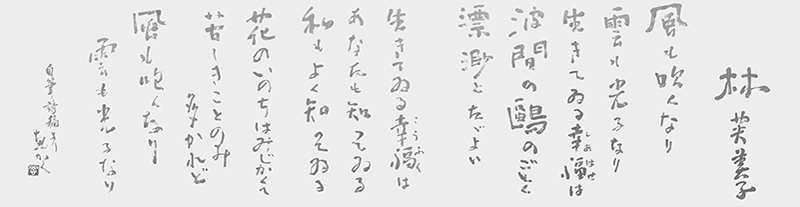 林
芙美子
風も吹くなり
雲も光るなり
生きてゐる幸福は
しあはせ
波間の鷗のごとく
漂渺とたゞよい
生きてゐる幸福は
こうふく
あなたも知ってゐる
私もよく知ってゐる
花のいのちはみじかくて
苦しきことのみ
多かれど
風も吹くなり
雲も光るなり
自筆詩稿より